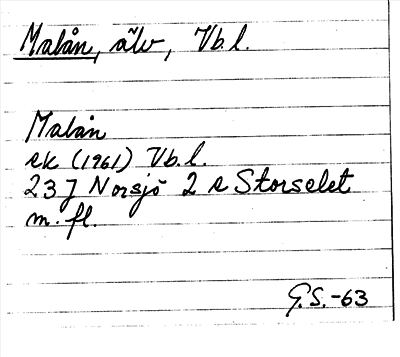 Malån, älv, Vb.l.
Malån
ek (1961) Vb.l.
23J Norsjö 2 e Storselet
m. fl.
G.S.-63